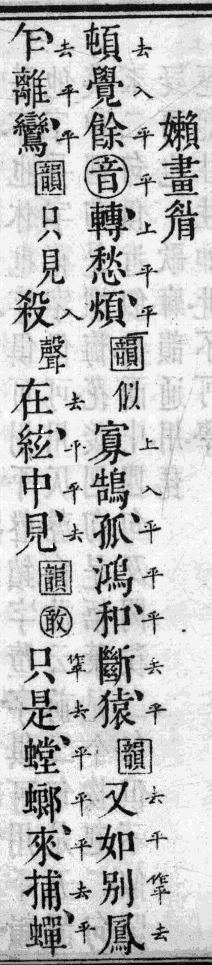 嬾畫睂
去入平平上平平上入平平平去平去平作平去
頓覺餘音轉愁煩韻似寡鵠孤鴻和斷猿韻又如别鳳
去平平入去平平去作平去平平平去平
乍離鸞韻只見殺聲在絃中見韻敢只是螳螂來捕蟬